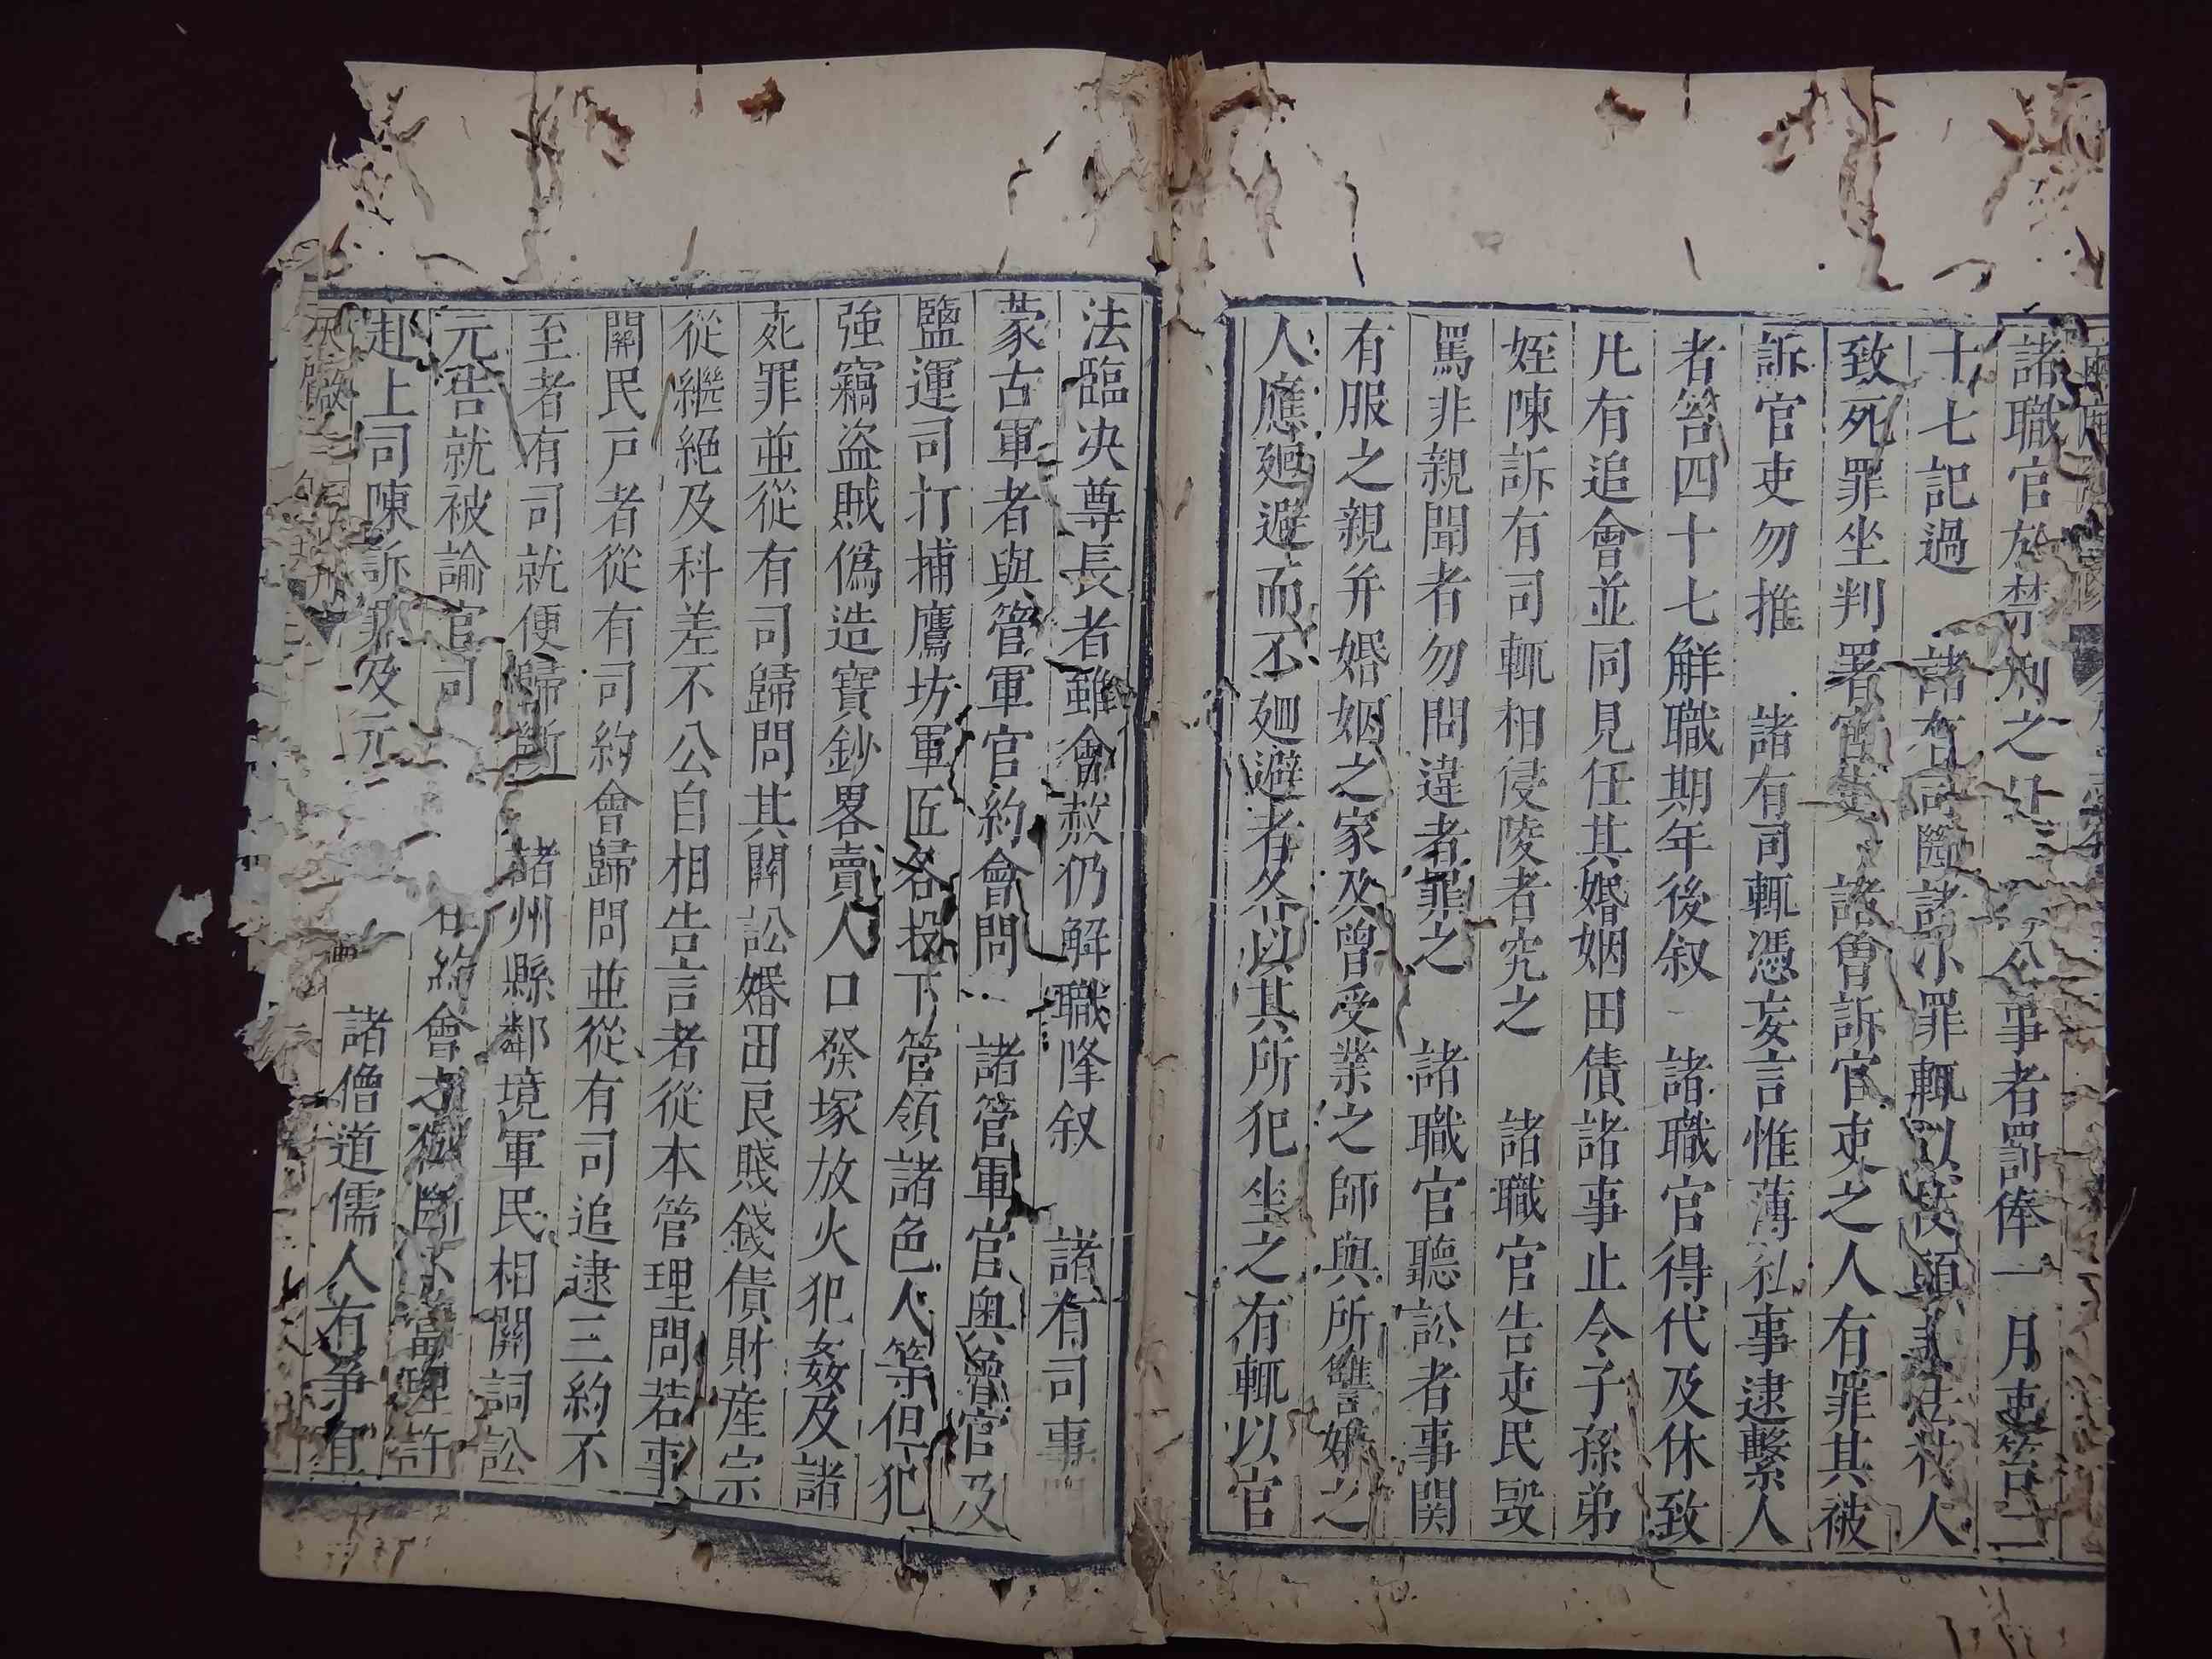 諸職官於禁刑之日 公事者罰俸一月吏笞二
十七記過　諸有司斷諸小罪輒以杖頭 杖人
致死罪坐判署官吏　諸曾訴官吏之人有罪其被
訴官吏勿推　諸有司輒憑妄言惟薄私事逮繫人
者笞四十七解職期年後叙　諸職官得代及休致
凡有追會並同見任其婚姻田債諸事止令子孫弟
姪陳訴有司輒相侵陵者究之　諸職官告吏民毀
罵非親聞者勿問違者罪之　諸職官聽訟者事関
有服之親并婚姻之家及曾受業之師與所讐嫌之
人應廻避而不廻避者各以其所犯坐之有輒以官
法臨决尊長者雖會赦仍解職降叙　諸有司事関
蒙古軍者與管軍官約會問　諸管軍官奥魯官及
鹽運司打捕鷹坊軍匠各投下管領諸色人等但犯
強竊盗賊偽造寳鈔畧賣人口發塚放火犯姦及諸
死罪並從有司歸問其鬬訟婚田良賤錢債財産宗
從繼絶及科差不公自相告言者從本管理問若事
關民戸者從有司約會歸問並從有司追逮三約不
至者有司就便歸斷　諸州縣鄰境軍民相關詞訟
元告就被論官司 在約會之例斷不當理許
赴上司陳訴罪及元 諸僧道儒人有爭有